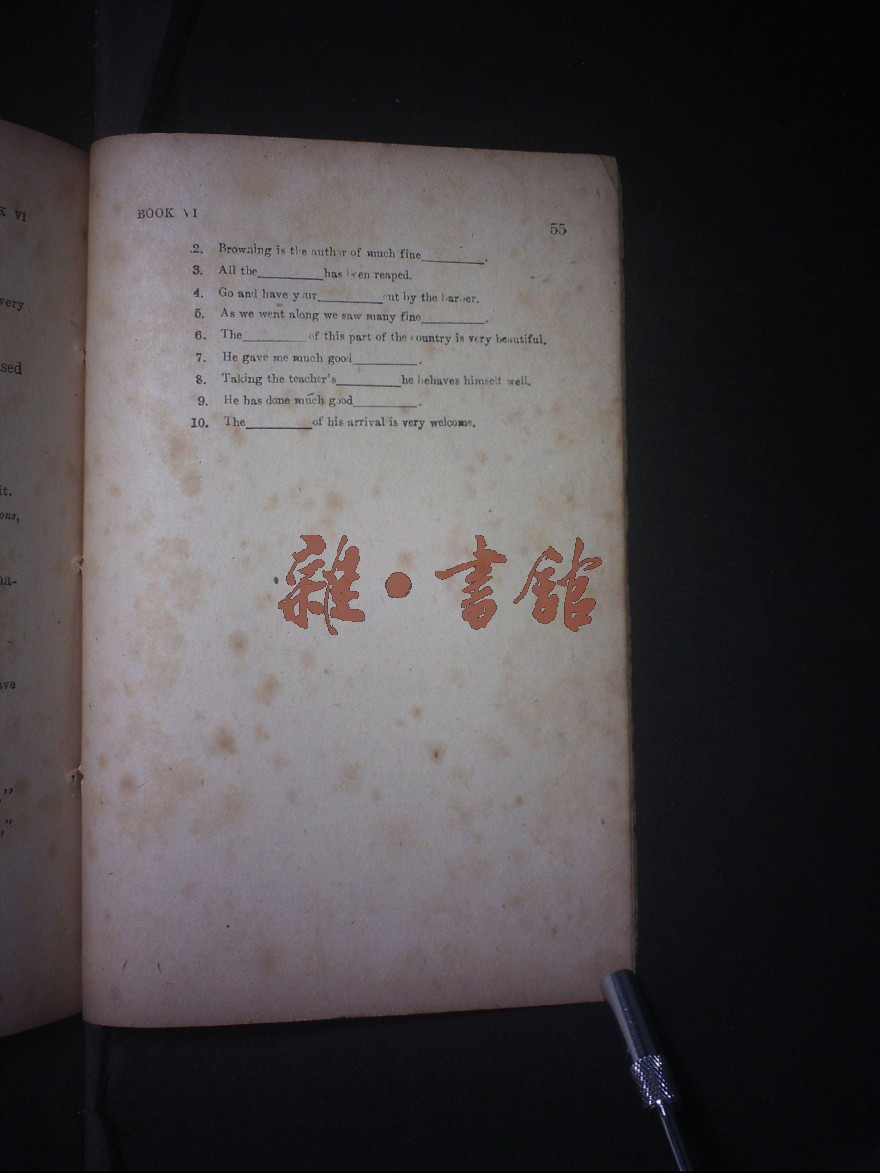 K VI
very
sed
it.
ons,
na-
ave
,"
,"
BOOK VI
55
2. Browning is the author of much fine__________.
3. All the__________has been reaped.
4. Go and have your__________cut by the barber.
5. As we went along we saw many fine__________.
6. The__________of this part of the country is very beautiful.
7. He gave me much good__________.
8. Taking the teacher's__________he behaves himself well.
9. He has done much good__________.
10. The__________of his arrival is very welcome.
雜·書館